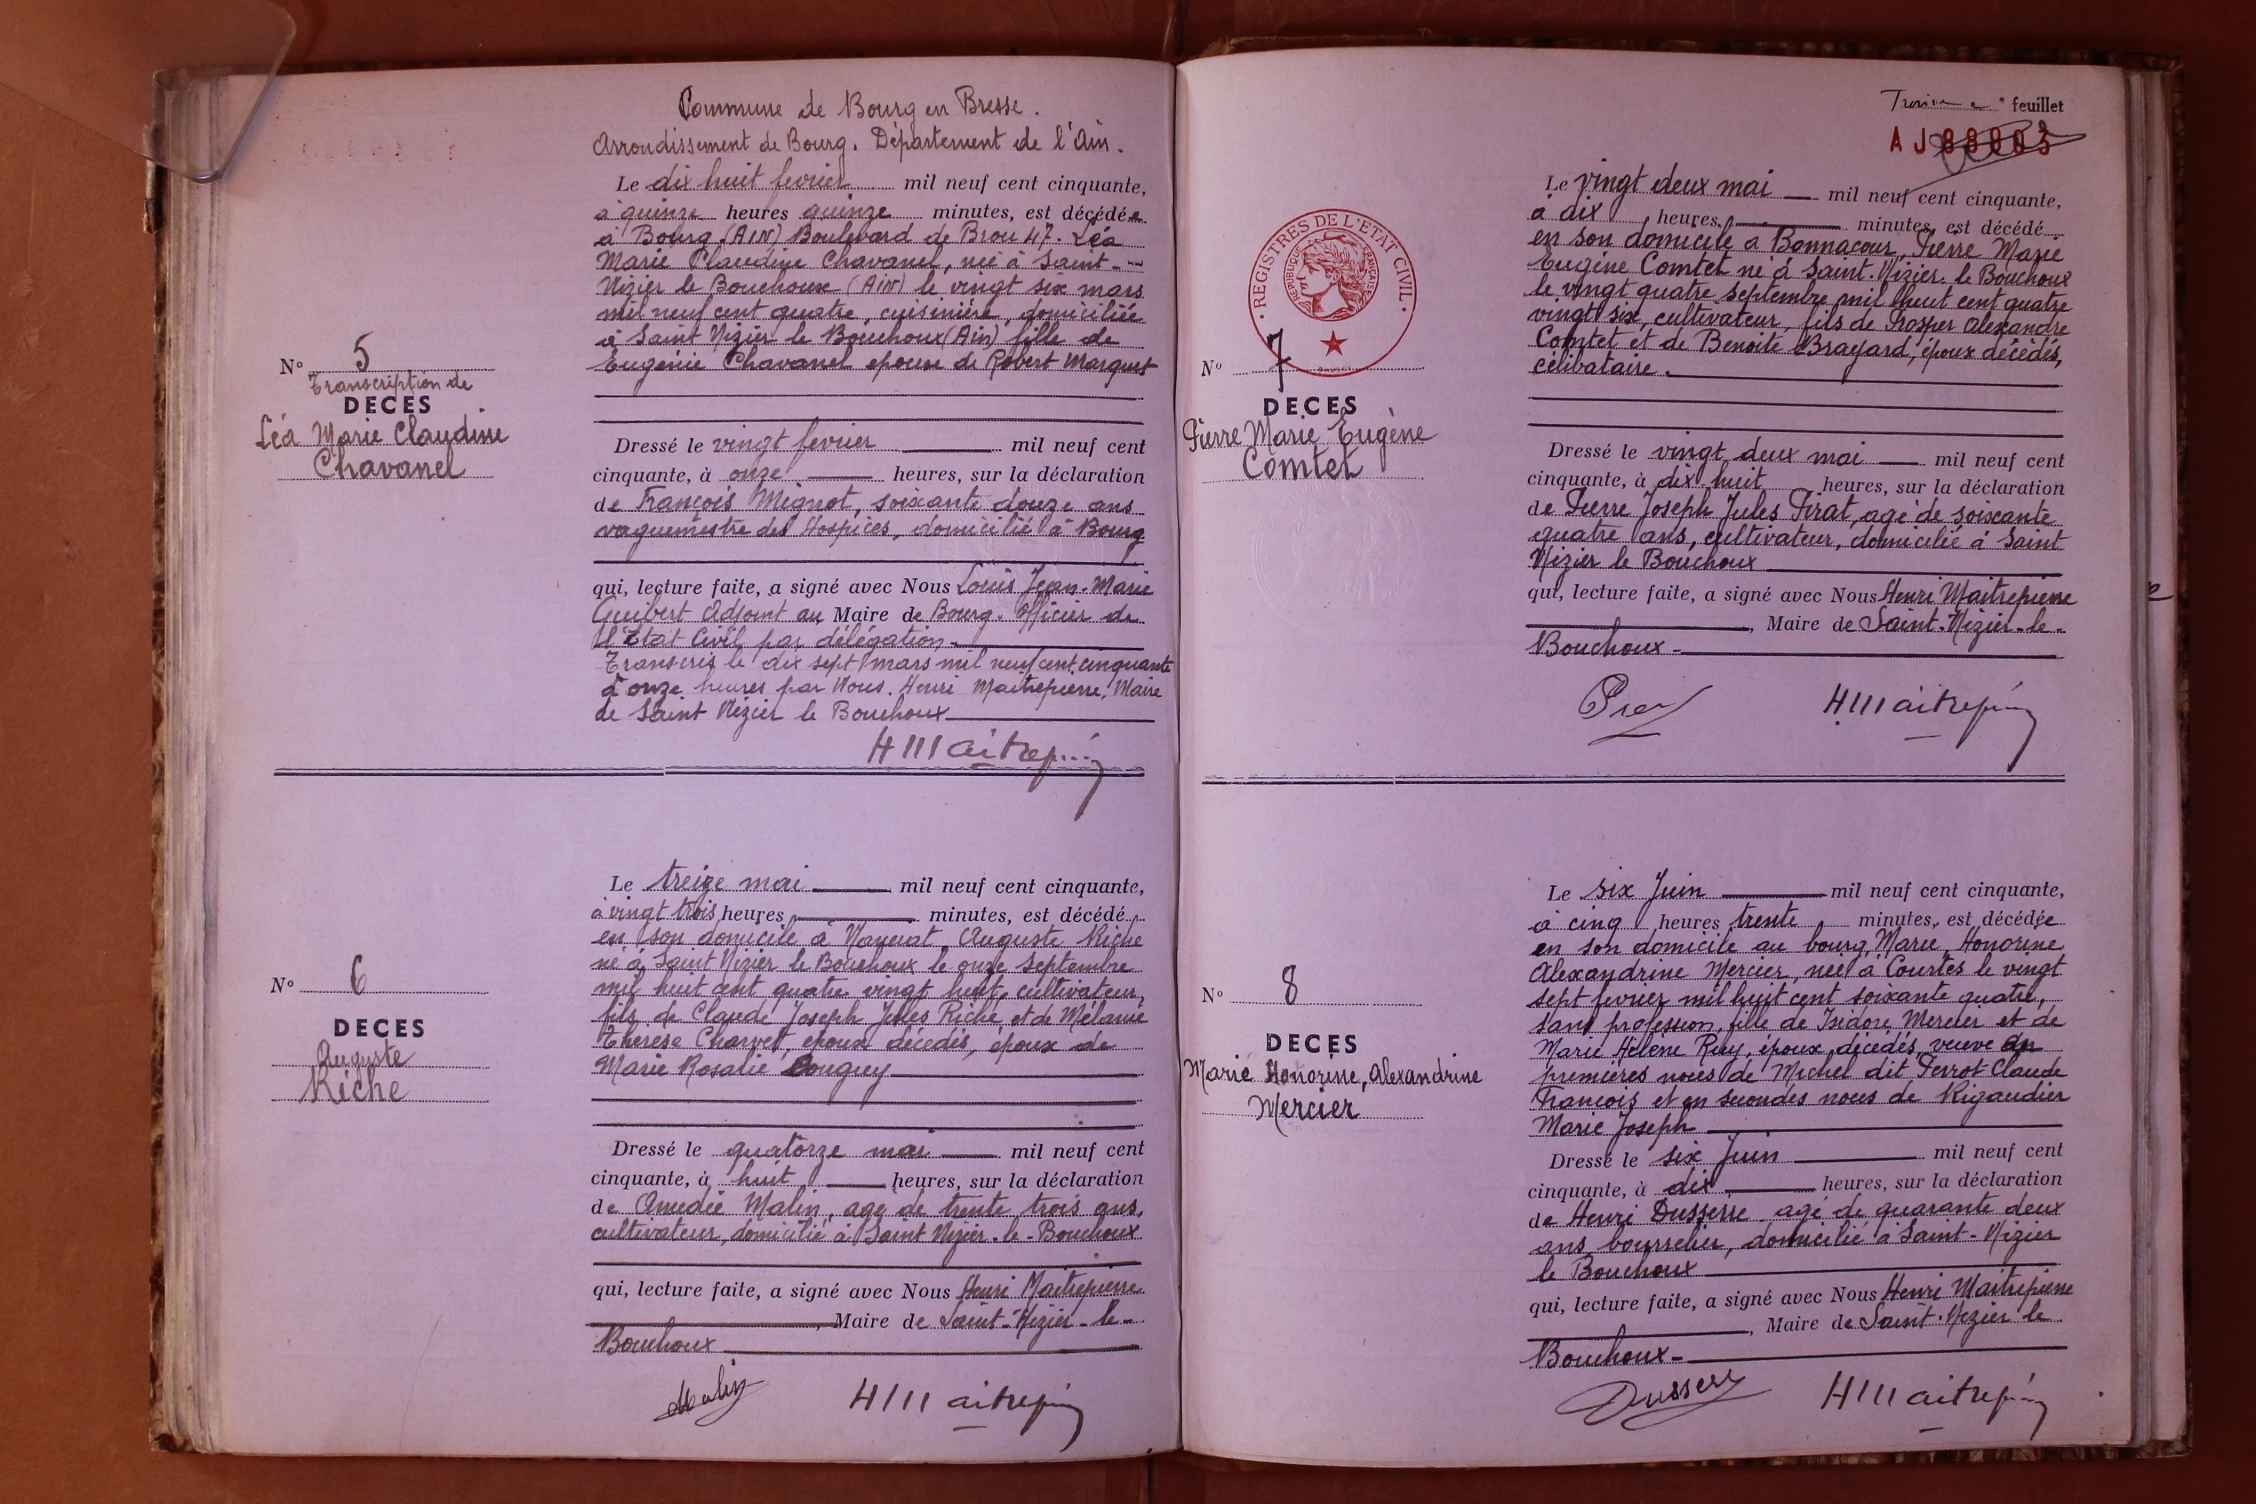 Commune de Bourg en Bresse.
Arrondissement de Bourg. Département de l'Ain.
Le dix huit fevrier mil neuf cent cinquante,
à quinze heures quinze minutes, est décédée
à Bourg (AIN) Boulevard de Brou 47. Léa
Marie Claudine Chavanel, née à Saint-
Nizier le Bouchoux (AIN) le vingt six mars
mil neuf cent quatre, cuisinière, domiciliée
à Saint Nizier le Bouchoux (Ain) fille de
Eugénie Chavanel epouse de Robert Marquet
N° 5
Transcription de
DECES
Léa Marie Claudine
Chavanel
Dressé le vingt fevrier mil neuf cent
cinquante, à onze heures, sur la déclaration
de François Mignot, soixante douze ans
vaguemestre des Hospices, domicilié à Bourg
qui, lecture faite, a signé avec Nous Louis Jean-Marie
Guibert Adjoint au Maire de Bourg. Officier de
l'Etat Civil par délégation.
Transcris le dix sept mars mil neuf cent cinquante
à onze heures par Nous. Henri Maitrepierre, Maire
de Saint Nizier le Bouchoux
HMaitrepierre
Le treize mai mil neuf cent cinquante,
à vingt trois heures minutes, est décédé
en son domicile à Auguste Riche
né à Saint Nizier le Bouchoux le onze septembre
mil huit cent quatre vingt huit, cultivateur,
fils de Claude Joseph Jules Riche et de Mélanie
Thérèse Charvet, époux décédés, époux de
Marie Rosalie Bouguey
N° 6
DECES
Auguste
Riche
Dressé le quatorze mai mil neuf cent
cinquante, à huit heures, sur la déclaration
de Amedée Malin, agé de trente trois ans,
cultivateur, domicilié à Saint Nizier-le-Bouchoux
qui, lecture faite, a signé avec Nous Henri Maitrepierre
, Maire de Saint-Nizier-le-
Bouchoux
Malin HMaitrepierre
feuillet
AJ
REGISTRES DE L'ETAT CIVIL
REPUBLIQUE FRANÇAISE
Le vingt deux mai mil neuf cent cinquante,
à dix heures minutes, est décédé
en son domicile à Bonnacour, Pierre Marie
Eugène Comtet né à Saint-Nizier-le Bouchoux
le vingt quatre septembre mil huit cent quatre
vingt six, cultivateur, fils de Prosper Alexandre
Comtet et de Benoite Brayard, époux décédés,
célibataire.
N° 7
DECES
Pierre Marie Eugène
Comtet
Dressé le vingt deux mai mil neuf cent
cinquante, à dix huit heures, sur la déclaration
de Pierre Joseph Jules Pirat, agé de soixante
quatre ans, cultivateur, domicilié à Saint
Nizier le Bouchoux
qui, lecture faite, a signé avec Nous Henri Maitrepierre
, Maire de Saint-Nizier-le-
Bouchoux-
HMaitrepierre
Le six Juin mil neuf cent cinquante,
à cinq heures trente minutes, est décédée
en son domicile au bourg, Marie, Honorine
Alexandrine Mercier, née à Courtes le vingt
sept fevrier mil huit cent soixante quatre,
sans profession, fille de Isidore Mercier et de
Marie Hélène Ruy, époux décédés, veuve en
premières noces de Michel dit Perrot Claude
François et en secondes noces de Rigaudier
Marie Joseph
N° 8
DECES
Marie Honorine, Alexandrine
Mercier
Dressé le six Juin mil neuf cent
cinquante, à dix heures, sur la déclaration
de Henri Dusserre agé de quarante deux
ans, bourrelier, domicilié à Saint-Nizier
le Bouchoux
qui, lecture faite, a signé avec Nous Henri Maitrepierre
, Maire de Saint-Nizier le
Bouchoux-
Dusserre HMaitrepierre